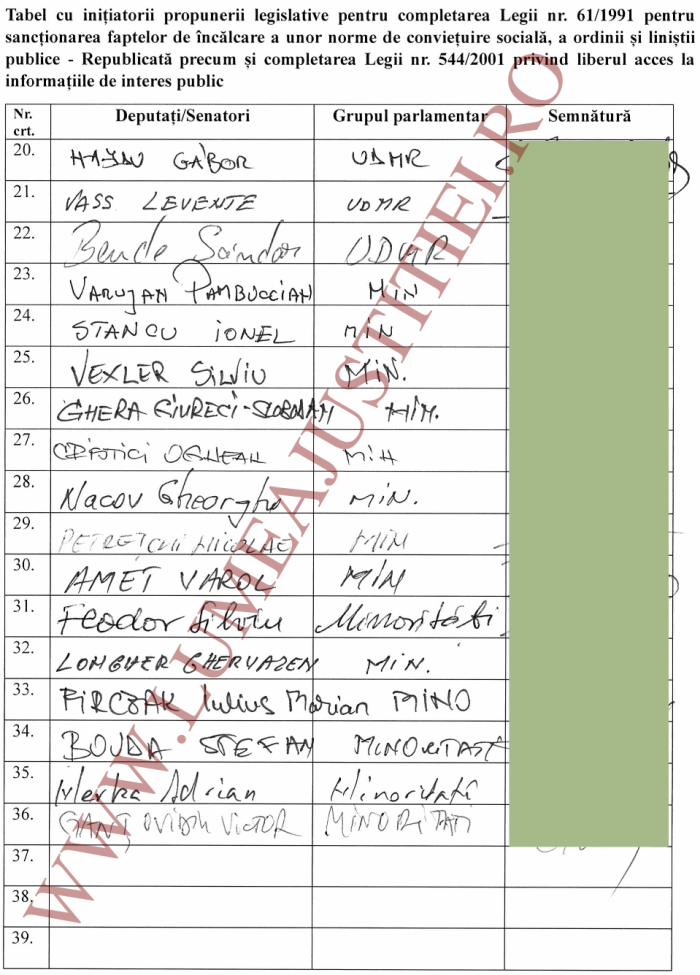 Tabel cu inițiatorii propunerii legislative pentru completarea Legii nr. 61/1991 pentru
sancționarea faptelor de încălcare a unor norme de conviețuire socială, a ordinii și liniștii
publice - Republicată precum și completarea Legii nr. 544/2001 privind liberul acces la
informațiile de interes public
Nr. crt. Deputați/Senatori Grupul parlamentar Semnătură
20. HAJDU GÁBOR UDMR
21. VASS LEVENTE UDMR
22. Bende Sándor UDMR
23. VARUJAN PAMBUCCIAN MIN
24. STANCU IONEL MIN
25. VEXLER SILVIU MIN.
26. GHERA GIURECI-SLOBODAN MIN.
27. OGNEAN MIN
28. Nacov Gheorghe MIN.
29. PETREȚCHI NICOLAE MIN
30. AMET VAROL MIN
31. Feodor Silviu Minorități
32. LONGHER GHERVAZEN MIN.
33. FIRCZAK Iulius Marian MINO
34. BOUDA STEFAN
35. Merka Adrian Minorități
36. GANȚ OVIDIU VICTOR MINORITATI
37.
38.
39.
WWW.LUMEAJUSTITIEI.RO